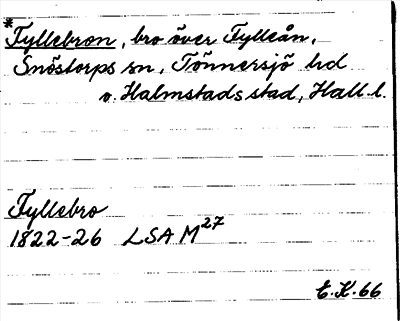 *Fyllebron, bro över Fylleån,
Snöstorps sn, Tönnersjö hd
o. Halmstads stad, Hall. l.
Fyllebro
1822-26 LSA M27
E.K. 66